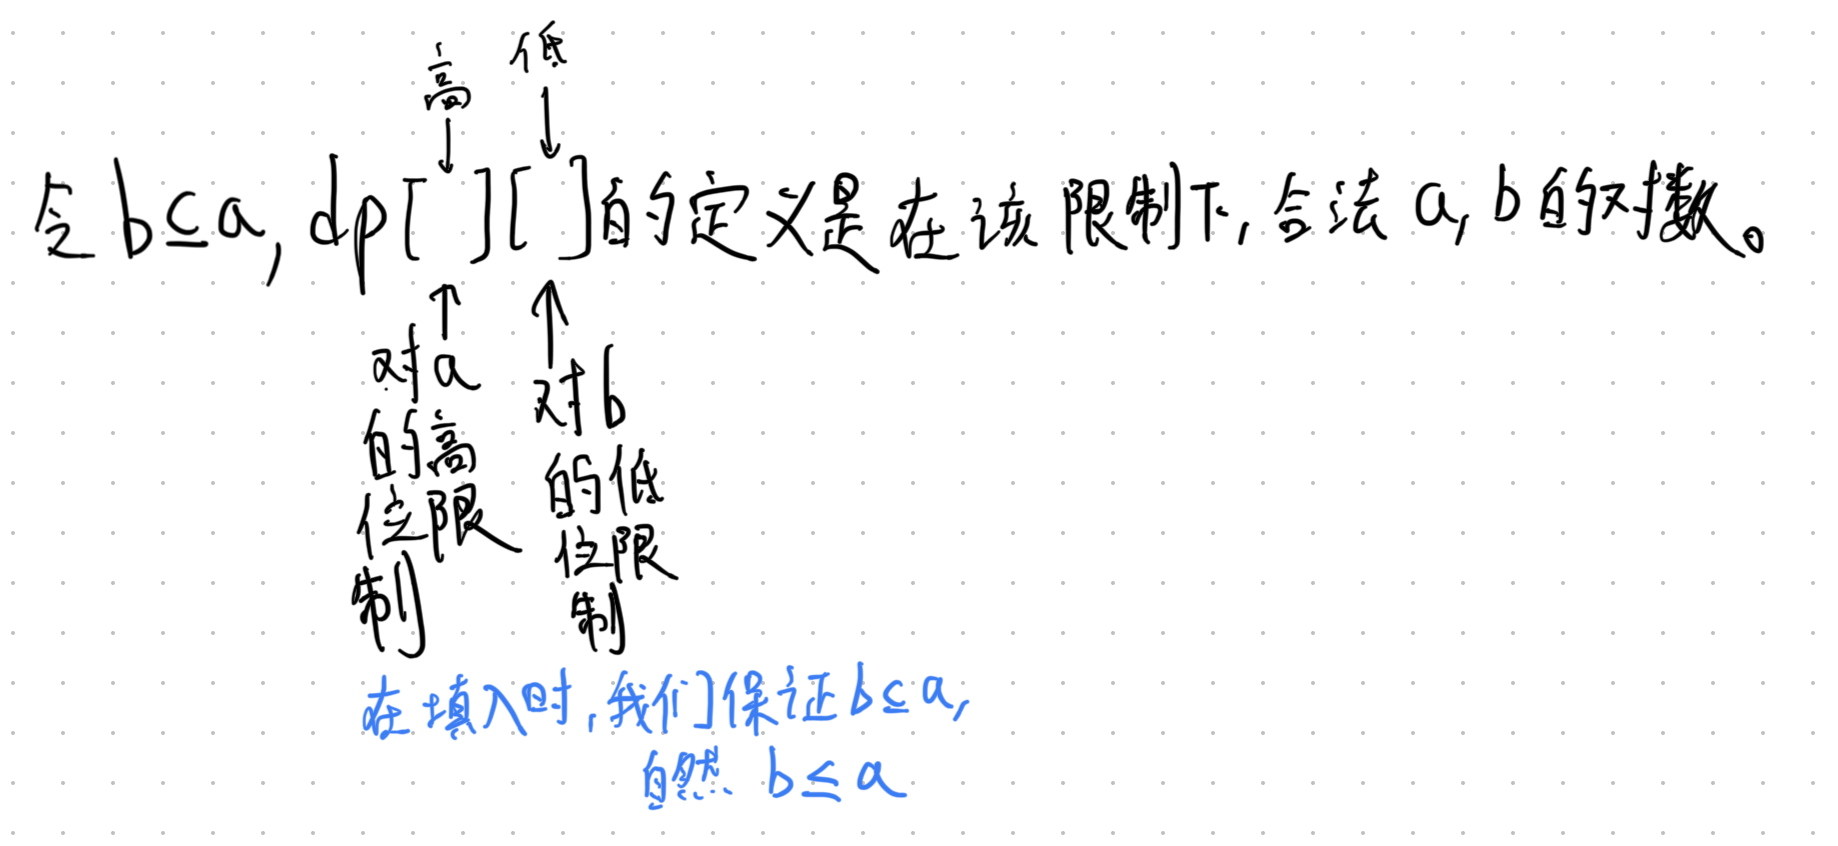 高 低
令 b⊆a, dp[ ][ ]的定义是在该限制下,合法 a, b 的对数。
对a
的高
位限
制
对b
的低
位限
制
在填入时,我们保证 b⊆a,
自然 b≤a